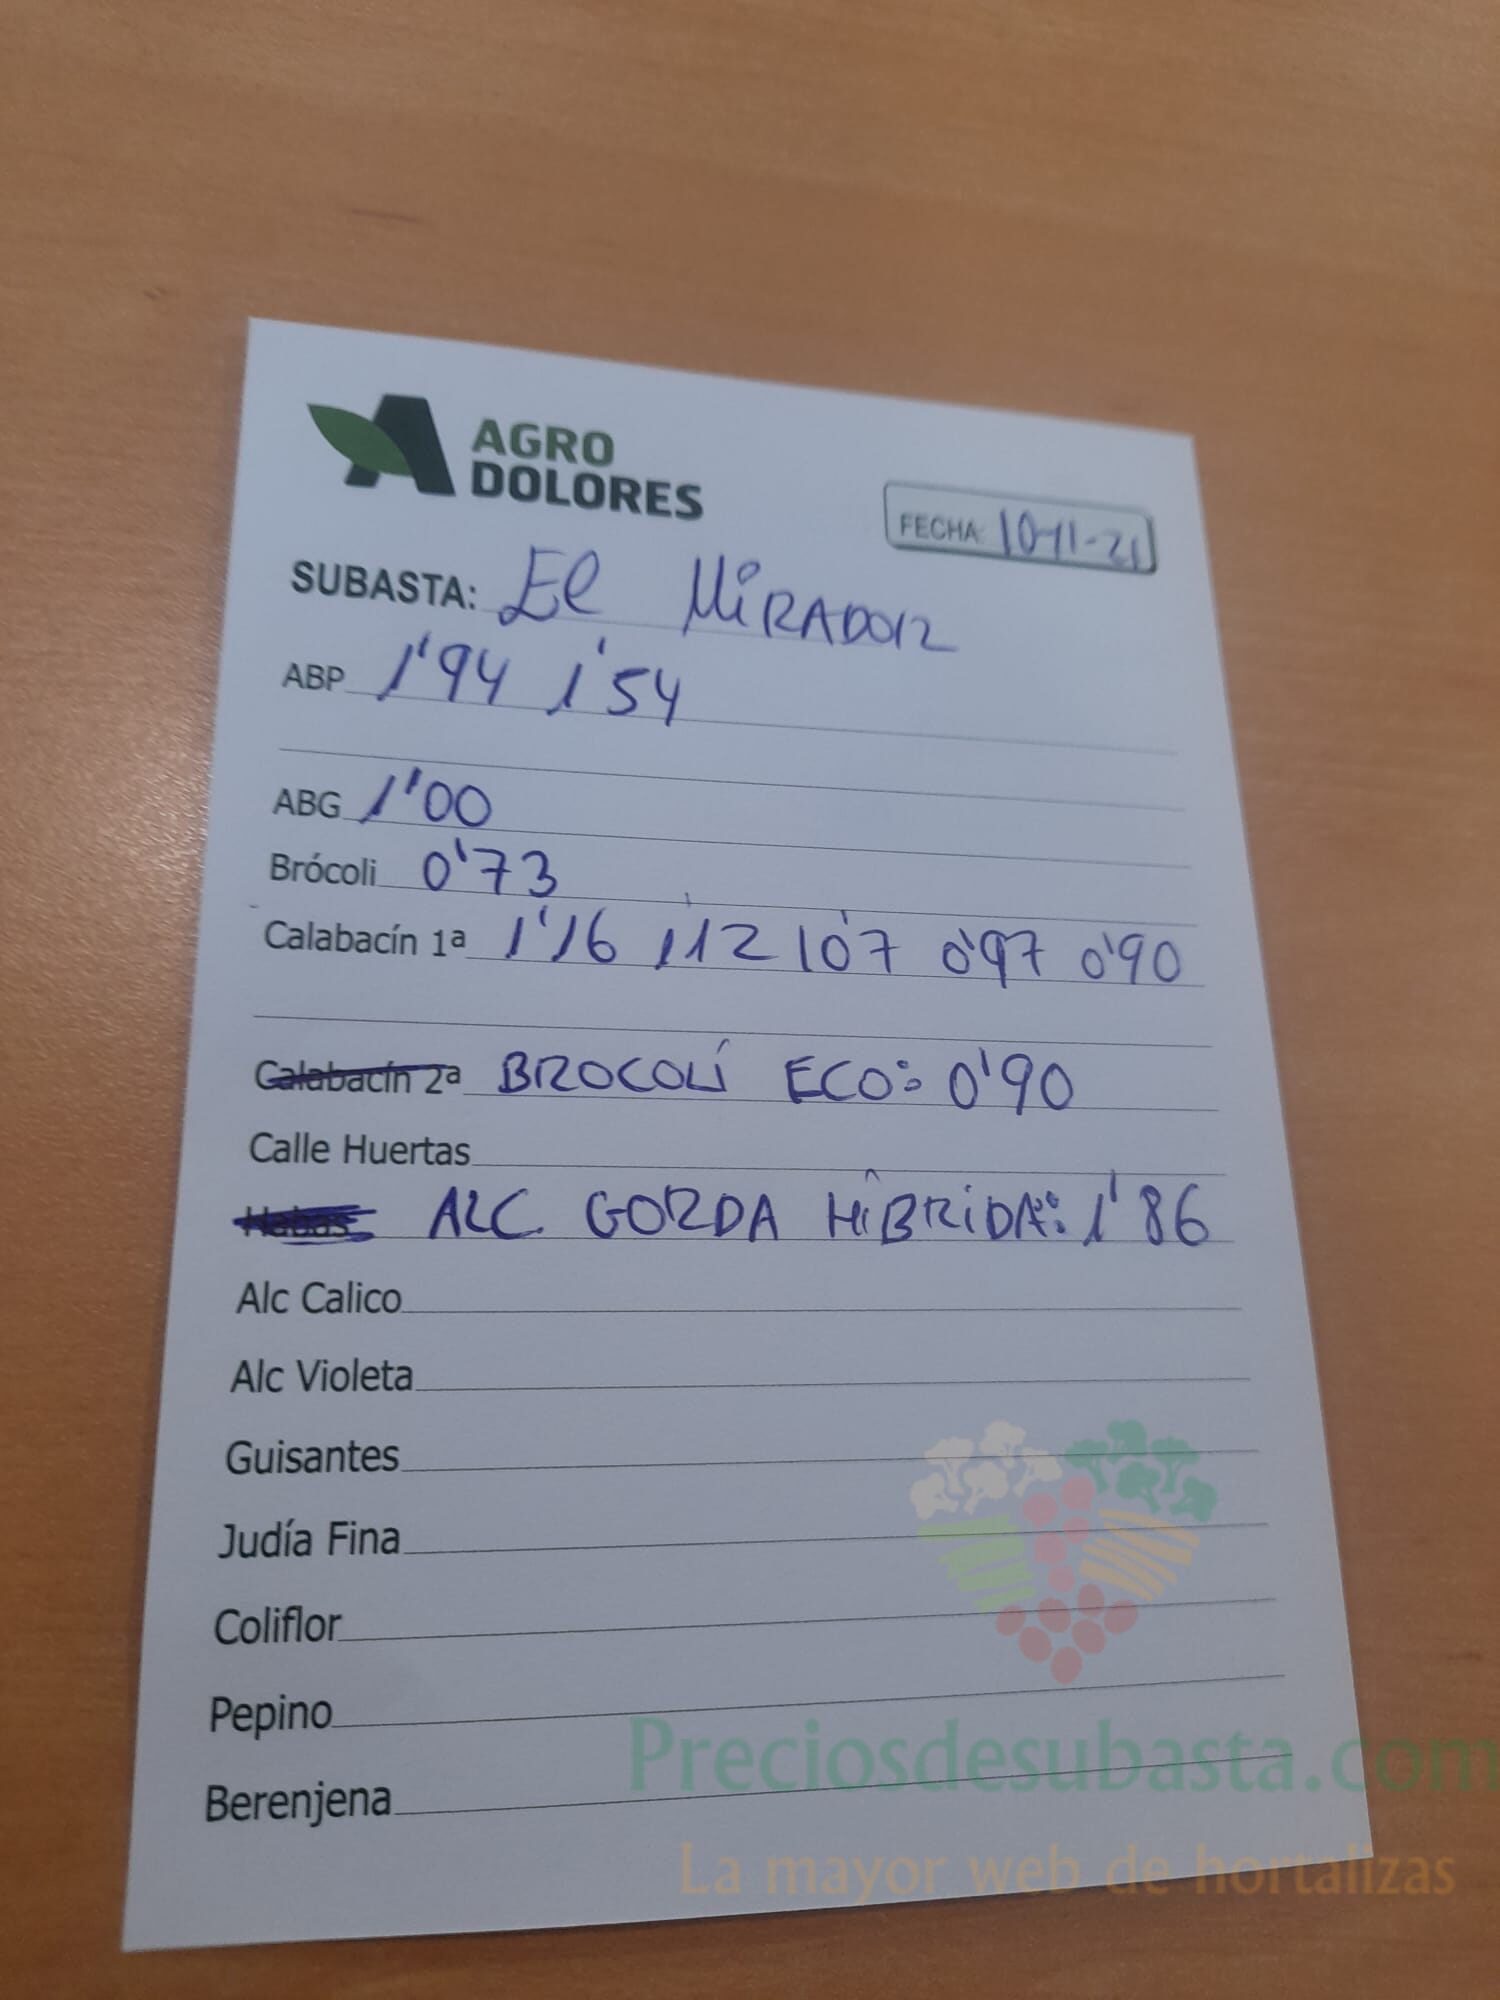 AGRO
DOLORES
FECHA: 10-11-21
SUBASTA: El MIRADOR
ABP 1'94 1'54
ABG 1'00
Brócoli 0'73
Calabacín 1ª 1'16 1'12 1'07 0'97 0'90
Calabacín 2ª BROCOLÍ ECO: 0'90
Calle Huertas
Habas ALC. GORDA HÍBRIDA: 1'86
Alc Calico
Alc Violeta
Guisantes
Judía Fina
Coliflor
Pepino
Preciosdesubasta.com
Berenjena
La mayor web de hortalizas